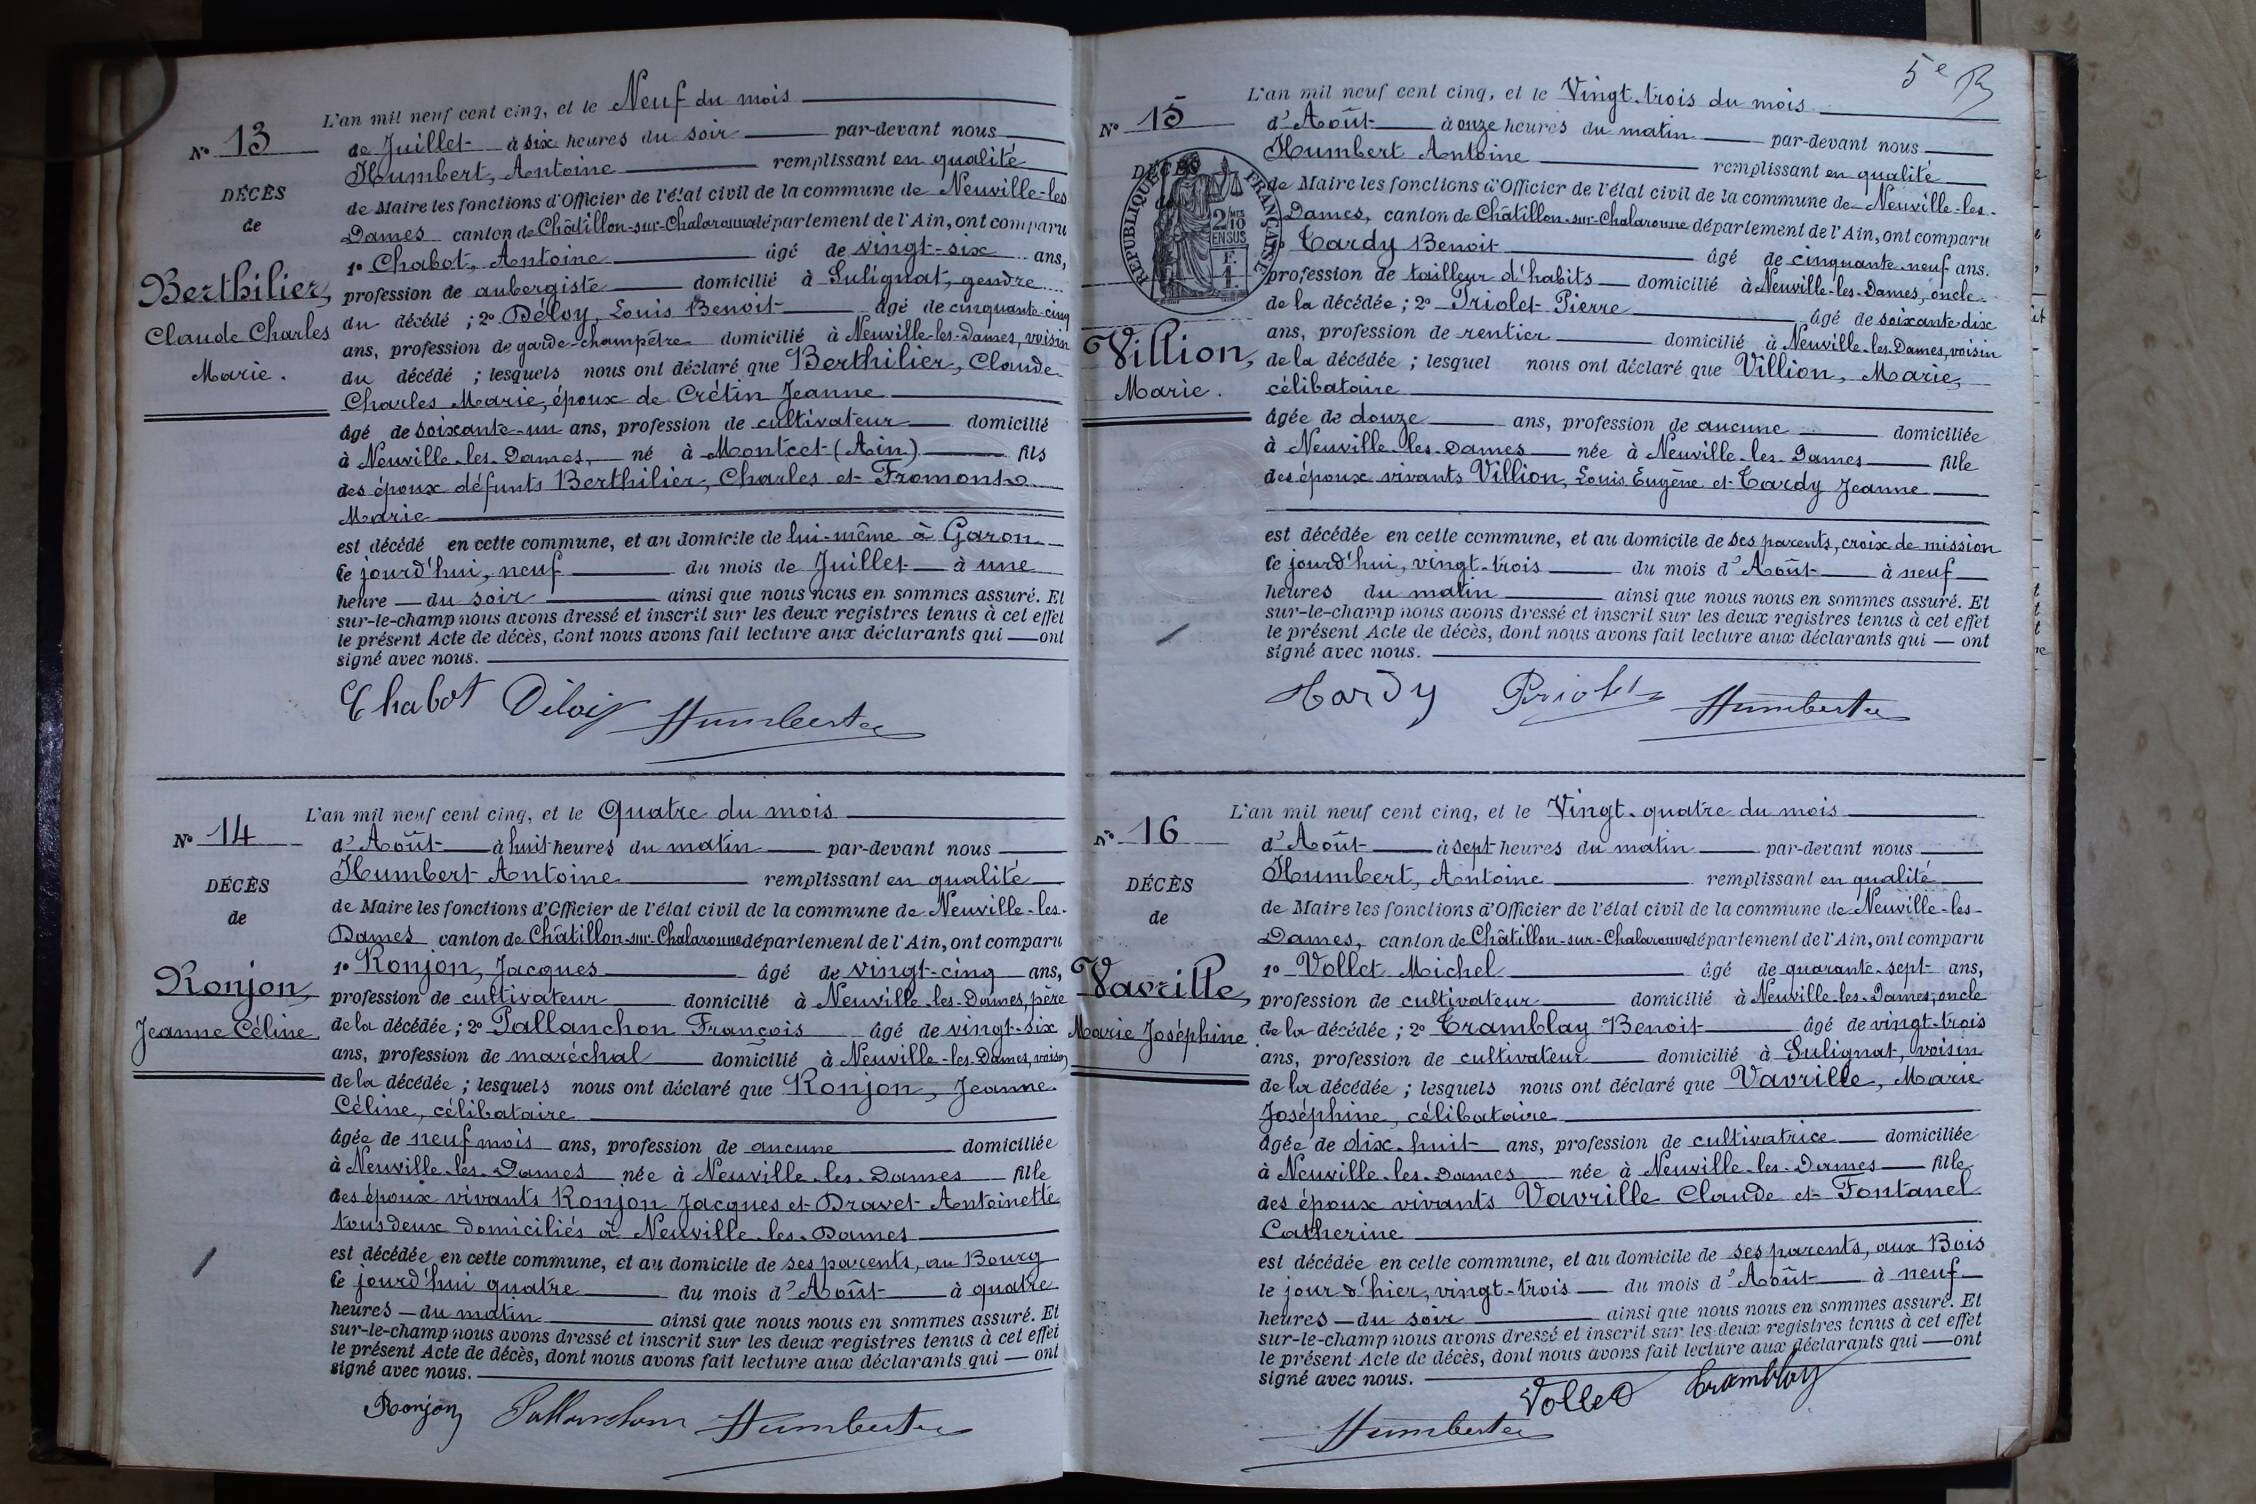 L'an mil neuf cent cinq, et le Neuf du mois
N° 13
de Juillet à six heures du soir par-devant nous
Humbert, Antoine remplissant en qualité
DÉCÈS
de Maire les fonctions d'Officier de l'état civil de la commune de Neuville-les
de
Dames canton de Châtillon-sur-Chalaronne département de l'Ain, ont comparu
1° Chabot, Antoine âgé de vingt-six ans,
Berthilier,
profession de aubergiste domicilié à Sulignat, gendre
Claude Charles
du décédé ; 2° Déloy, Louis Benoit âgé de cinquante-cinq
ans, profession de garde-champêtre domicilié à Neuville-les-Dames, voisin
Marie.
du décédé ; lesquels nous ont déclaré que Berthilier, Claude
Charles Marie, époux de Crétin Jeanne
âgé de soixante-un ans, profession de cultivateur domicilié
à Neuville-les-Dames, né à Montcet (Ain) fils
des époux défunts Berthilier, Charles et Fromont
Marie
est décédé en cette commune, et au domicile de lui-même à Garon
le jourd'hui, neuf du mois de Juillet à une
heure du soir ainsi que nous nous en sommes assuré. Et
sur-le-champ nous avons dressé et inscrit sur les deux registres tenus à cet effet
le présent Acte de décès, dont nous avons fait lecture aux déclarants qui — ont
signé avec nous.
Chabot Déloy Humbert
L'an mil neuf cent cinq, et le Quatre du mois
N° 14
d'Août à huit heures du matin par-devant nous
Humbert Antoine remplissant en qualité
DÉCÈS
de Maire les fonctions d'Officier de l'état civil de la commune de Neuville-les-
de
Dames canton de Châtillon-sur-Chalaronne département de l'Ain, ont comparu
1° Ronjon, Jacques âgé de vingt-cinq ans,
Ronjon,
profession de cultivateur domicilié à Neuville-les-Dames, père
Jeanne Céline
de la décédée ; 2° Pallanchon François âgé de vingt-six
ans, profession de maréchal domicilié à Neuville-les-Dames, voisin
de la décédée ; lesquels nous ont déclaré que Ronjon, Jeanne
Céline, célibataire
âgée de neuf mois ans, profession de aucune domiciliée
à Neuville-les-Dames née à Neuville-les-Dames fille
des époux vivants Ronjon Jacques et Dravet Antoinette
tous deux domiciliés à Neuville-les-Dames
est décédée en cette commune, et au domicile de ses parents, au Bourg
le jourd'hui quatre du mois d'Août à quatre
heures — du matin ainsi que nous nous en sommes assuré. Et
sur-le-champ nous avons dressé et inscrit sur les deux registres tenus à cet effet
le présent Acte de décès, dont nous avons fait lecture aux déclarants qui — ont
signé avec nous.
Ronjon Pallanchon Humbert
5e
L'an mil neuf cent cinq, et le Vingt-trois du mois
N° 15
d'Août à onze heures du matin par-devant nous
Humbert Antoine remplissant en qualité
DÉCÈS
RÉPUBLIQUE FRANÇAISE
2/10 EN SUS
F. 1.
de Maire les fonctions d'Officier de l'état civil de la commune de Neuville-les-
Dames, canton de Châtillon-sur-Chalaronne département de l'Ain, ont comparu
1° Tardy Benoit âgé de cinquante-neuf ans.
profession de tailleur d'habits domicilié à Neuville-les-Dames, oncle
de la décédée ; 2° Priolet Pierre âgé de soixante-dix
Villion,
ans, profession de rentier domicilié à Neuville-les-Dames, voisin
Marie.
de la décédée ; lesquel nous ont déclaré que Villion, Marie,
célibataire
âgée de douze ans, profession de aucune domiciliée
à Neuville-les-Dames née à Neuville-les-Dames fille
des époux vivants Villion, Louis Eugène et Tardy Jeanne
est décédée en cette commune, et au domicile de ses parents, croix de mission
le jourd'hui, vingt-trois du mois d'Août à neuf
heures du matin ainsi que nous nous en sommes assuré. Et
sur-le-champ nous avons dressé et inscrit sur les deux registres tenus à cet effet
le présent Acte de décès, dont nous avons fait lecture aux déclarants qui — ont
signé avec nous.
Tardy Priolet Humbert
L'an mil neuf cent cinq, et le Vingt-quatre du mois
N° 16
d'Août à sept heures du matin par-devant nous
Humbert, Antoine remplissant en qualité
DÉCÈS
de Maire les fonctions d'Officier de l'état civil de la commune de Neuville-les-
de
Dames, canton de Châtillon-sur-Chalaronne département de l'Ain, ont comparu
1° Vollet Michel âgé de quarante-sept ans,
Vavrille,
profession de cultivateur domicilié à Neuville-les-Dames, oncle
Marie Joséphine.
de la décédée ; 2° Tramblay Benoit âgé de vingt-trois
ans, profession de cultivateur domicilié à Sulignat, voisin
de la décédée ; lesquels nous ont déclaré que Vavrille, Marie
Joséphine, célibataire
âgée de dix-huit ans, profession de cultivatrice domiciliée
à Neuville-les-Dames née à Neuville-les-Dames fille
des époux vivants Vavrille Claude et Fontanel
Catherine
est décédée en cette commune, et au domicile de ses parents, aux Bois
le jour d'hier, vingt-trois du mois d'Août à neuf
heures — du soir ainsi que nous nous en sommes assuré. Et
sur-le-champ nous avons dressé et inscrit sur les deux registres tenus à cet effet
le présent Acte de décès, dont nous avons fait lecture aux déclarants qui — ont
signé avec nous.
Vollet Tramblay
Humbert